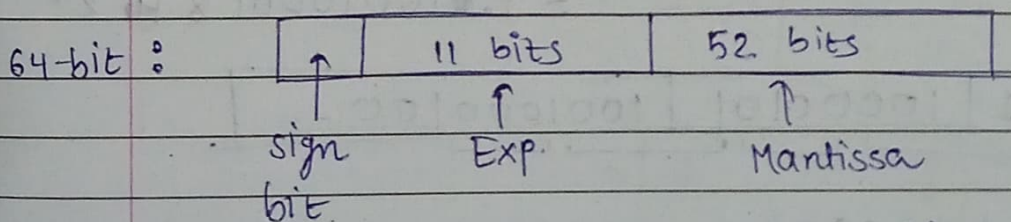 64-bit : 11 bits 52 bits
sign Exp. Mantissa
bit